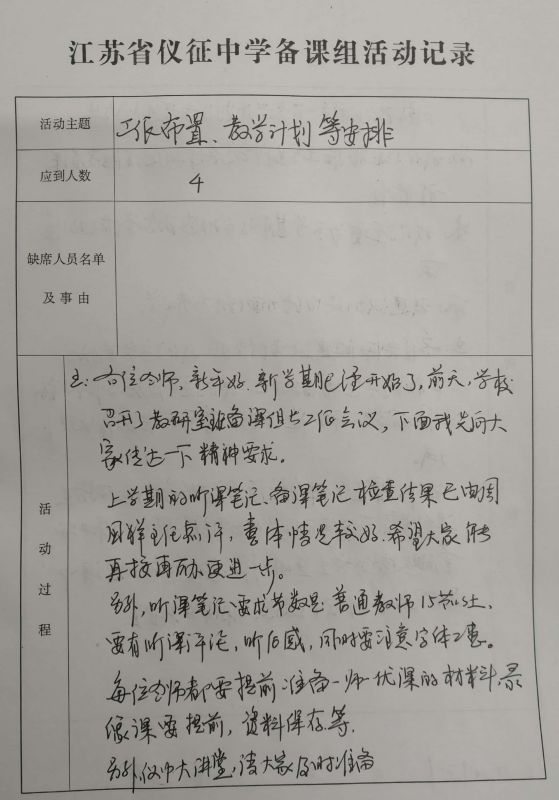 江苏省仪征中学备课组活动记录
活动主题
工作布置、教学计划等安排
应到人数
4
缺席人员名单
及事由
活动过程
主:各位老师,新年好.新学期已经开始了,前天,学校
召开了教研室班备课组长工作会议,下面我先向大
家传达一下精神要求。
上学期的听课笔记、备课笔记检查结果已由周
国祥主任点评,整体情况较好.希望大家能
再接再力更进一步。
另外,听课笔记要求节数是普通教师15节以上,
要有听课评论,听后感,同时要注意字体工整。
每位老师都要提前准备一师一优课的材料,录
像课要提前,资料保存等.
另外仪中大讲堂,请大家及时准备